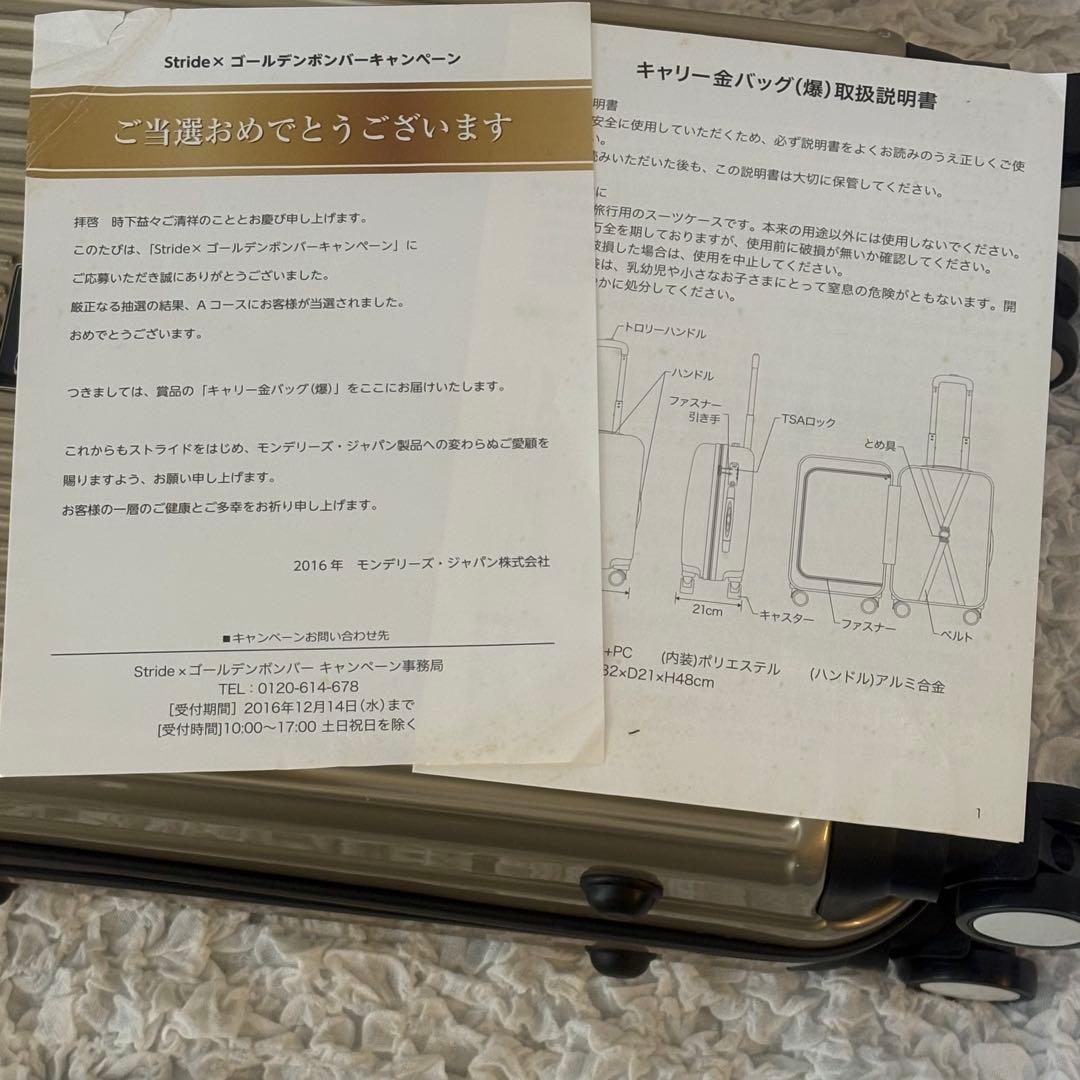 Stride× ゴールデンボンバーキャンペーン
ご当選おめでとうございます
拝啓　時下益々ご清祥のこととお慶び申し上げます。
このたびは、「Stride× ゴールデンボンバーキャンペーン」に
ご応募いただき誠にありがとうございました。
厳正なる抽選の結果、A コースにお客様が当選されました。
おめでとうございます。
つきましては、賞品の「キャリー金バッグ（爆）」をここにお届けいたします。
これからもストライドをはじめ、モンデリーズ・ジャパン製品への変わらぬご愛顧を
賜りますよう、お願い申し上げます。
お客様の一層のご健康とご多幸をお祈り申し上げます。
2016 年　モンデリーズ・ジャパン株式会社
■キャンペーンお問い合わせ先
Stride×ゴールデンボンバー キャンペーン事務局
TEL：0120-614-678
［受付期間］2016年12月14日（水）まで
[受付時間]10:00〜17:00 土日祝日を除く
キャリー金バッグ（爆）取扱説明書
明書
安全に使用していただくため、必ず説明書をよくお読みのうえ正しくご使
い。
読みいただいた後も、この説明書は大切に保管してください。
に
旅行用のスーツケースです。本来の用途以外には使用しないでください。
万全を期しておりますが、使用前に破損が無いか確認してください。
破損した場合は、使用を中止してください。
袋は、乳幼児や小さなお子さまにとって窒息の危険がともないます。開
やかに処分してください。
トロリーハンドル
ハンドル
ファスナー
引き手
TSAロック
とめ具
21cm
キャスター
ファスナー
ベルト
+PC　(内装)ポリエステル　(ハンドル)アルミ合金
32×D21×H48cm
1